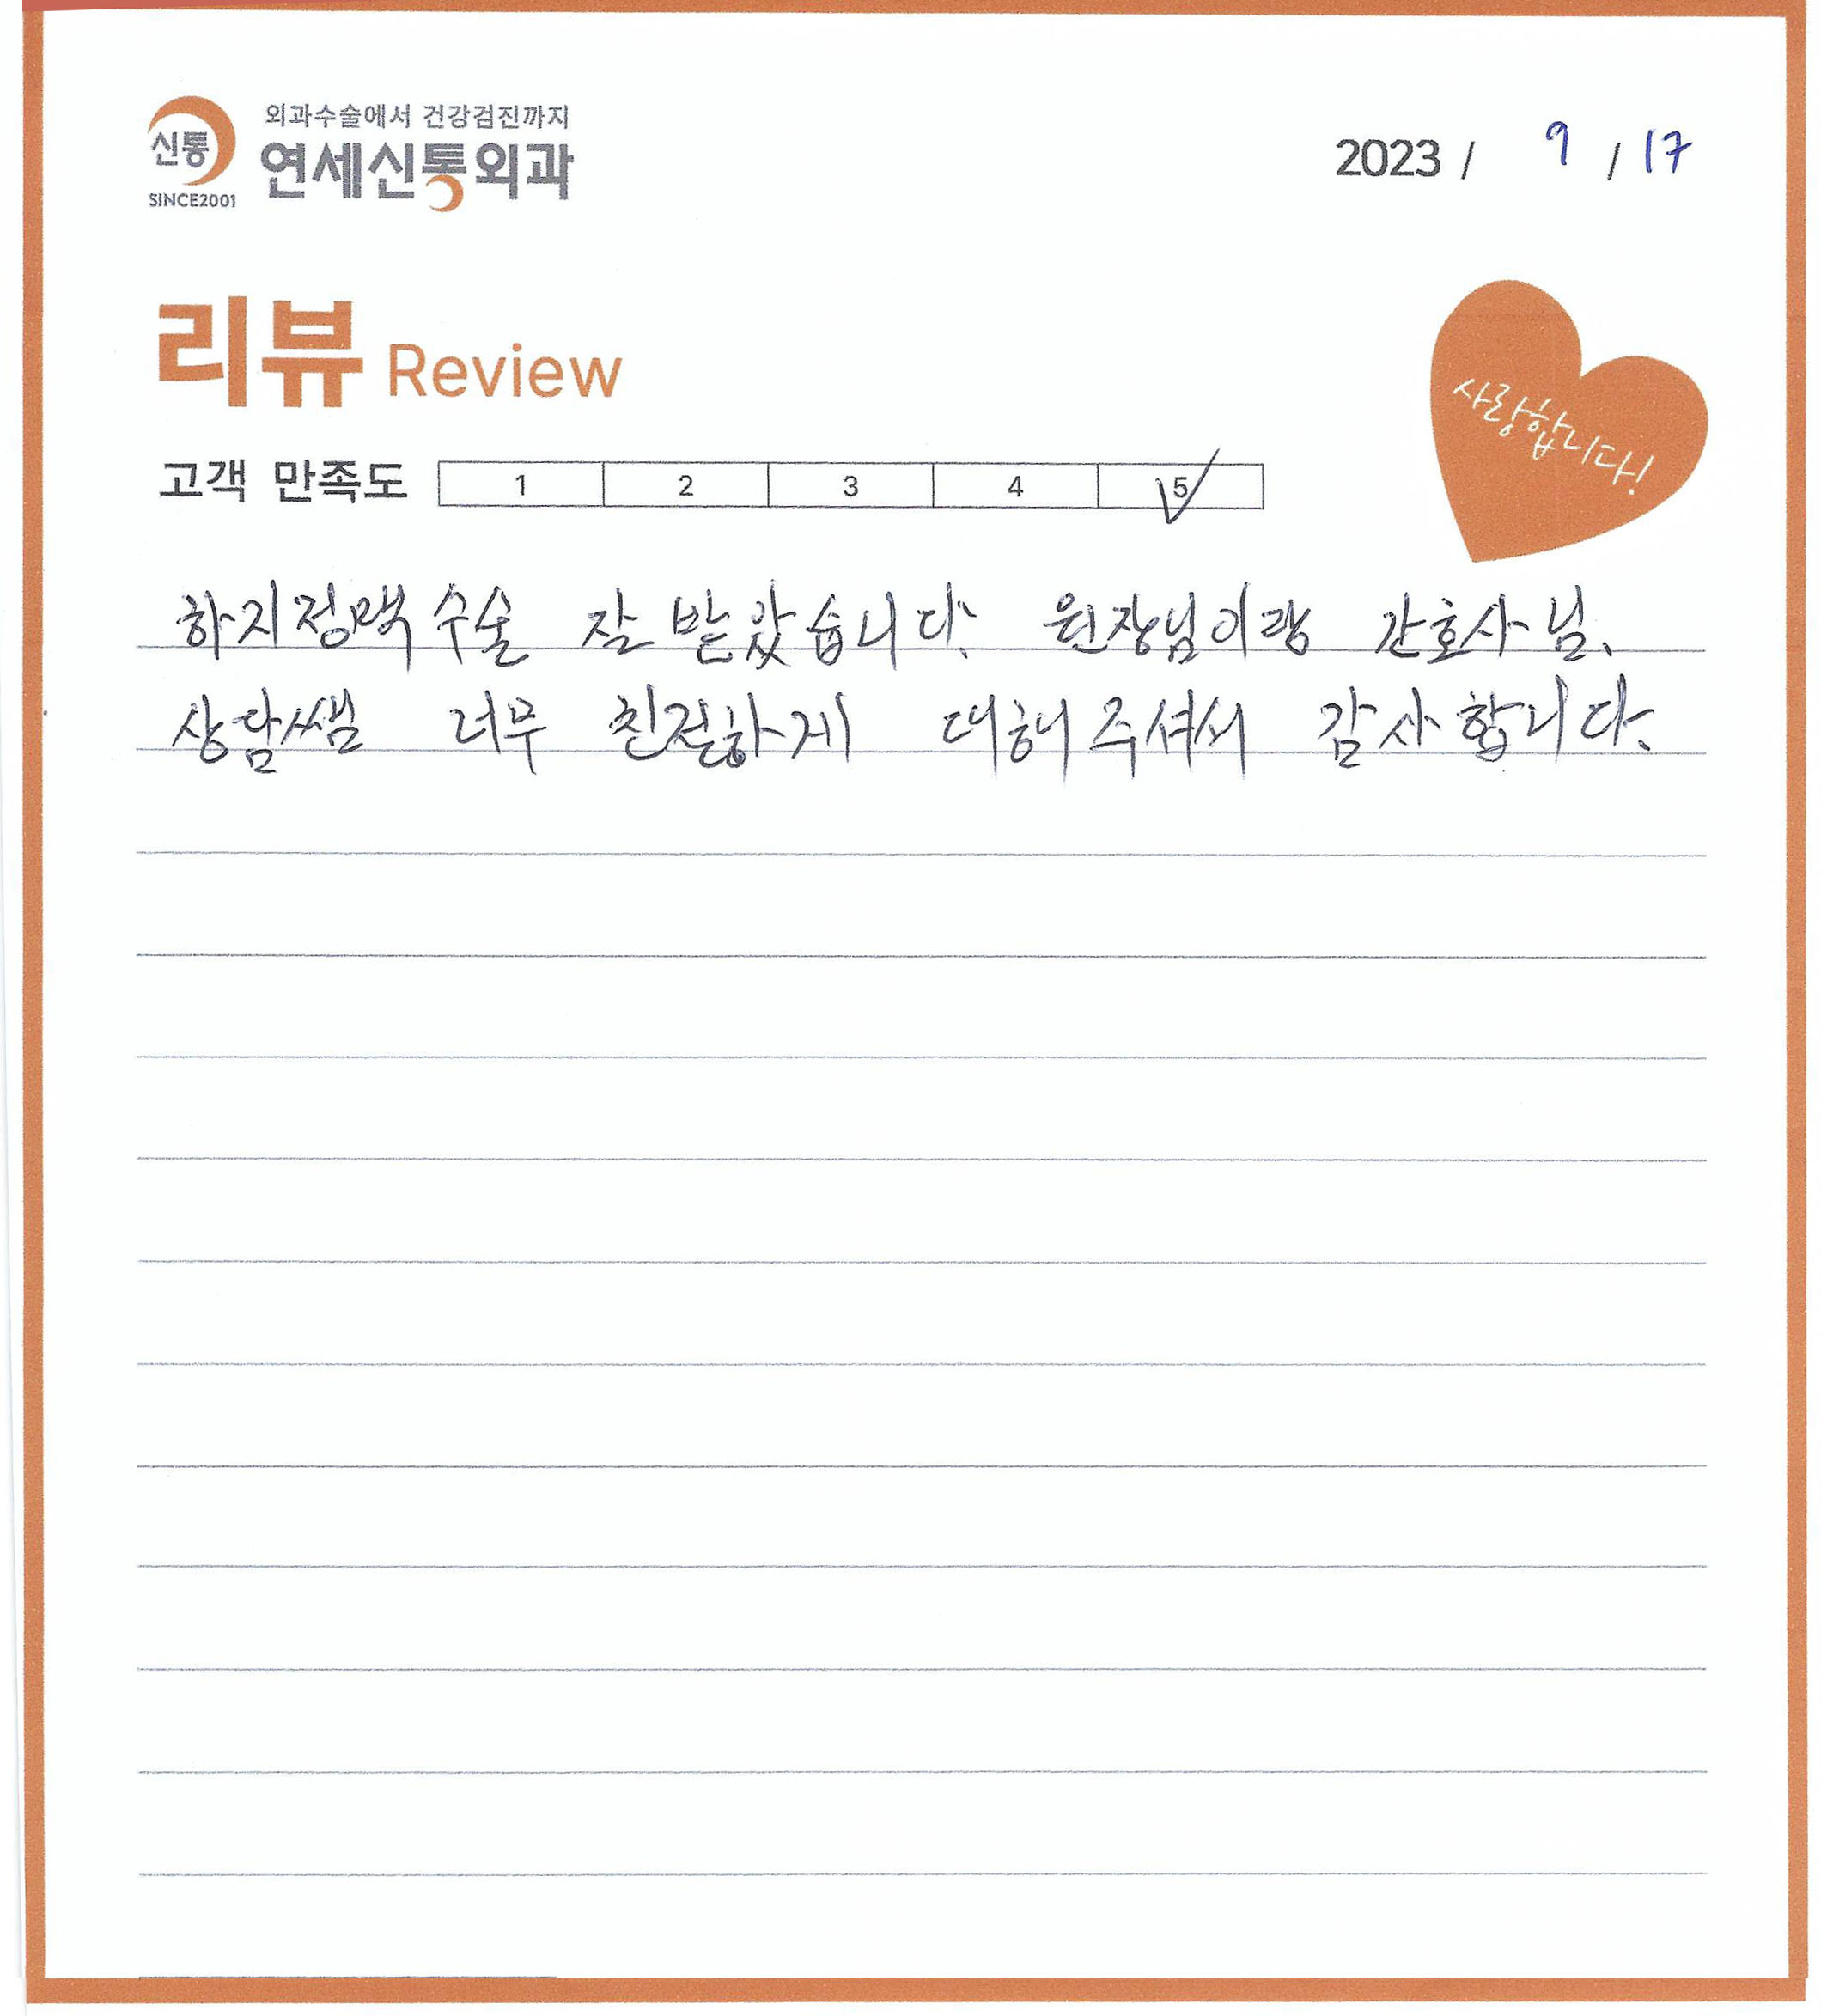 외과수술에서 건강검진까지
신통 연세신통외과
SINCE2001
2023 / 9 / 17
리뷰 Review
사랑합니다!
고객 만족도 1 2 3 4 5
하지정맥 수술 잘 받았습니다. 원장님이랑 간호사님.
상담쌤 너무 친절하게 대해주셔서 감사합니다.